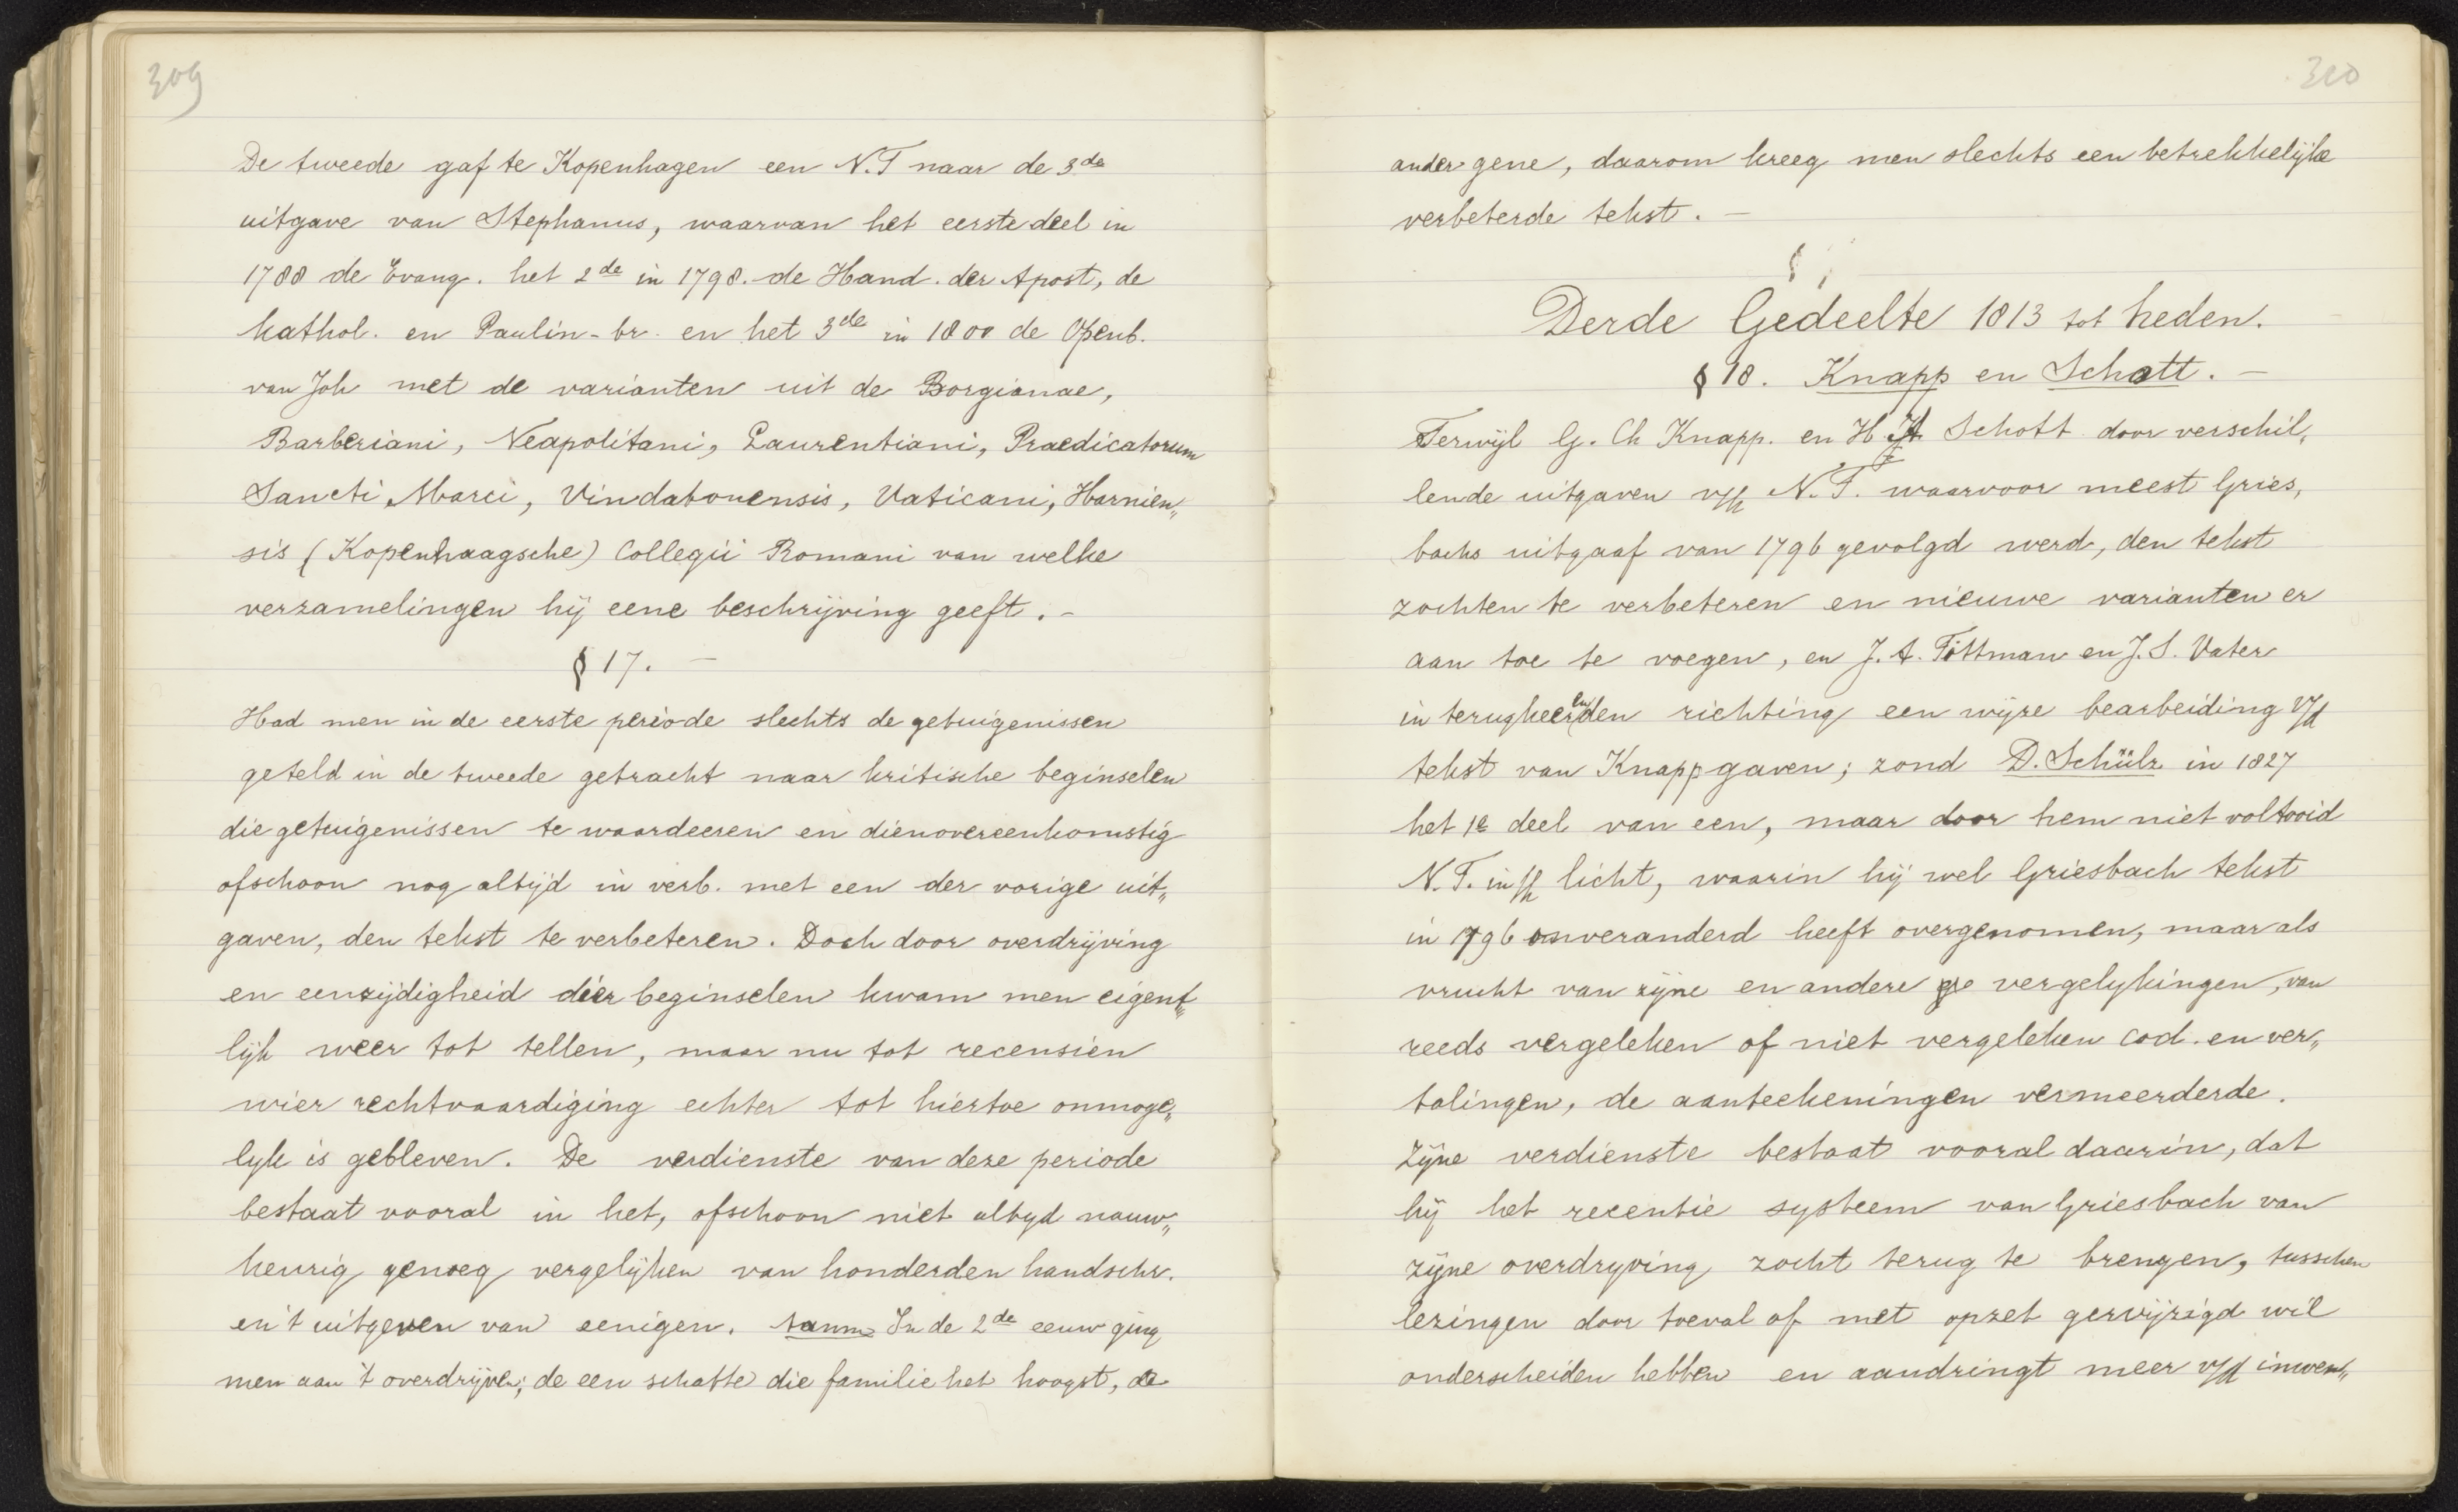 309
De tweede gaf te Kopenhagen een N.T naar de 3de
uitgave van Stephanus, waarvan het eerste deel in
1788 de Evang. het 2de in 1798. de Hand. der Apost, de
kathol. en Paulin-br. en het 3de in 1800 de Openb.
van Joh met de varianten uit de Borgianae,
Barberiani, Neapolitani, Laurentiani, Praedicatorum
Sancti Marci, Vindabonensis, Vaticani, Harnien„
sis (Kopenhaagsche) Collegii Romani van welke
verzamelingen hij eene beschrijving geeft. -
§ 17. -
Had men in de eerste periode slechts de getuigenissen
geteld in de tweede getracht naar kritische beginselen
die getuigenissen te waardeeren en dienovereenkomstig
ofschoon nog altijd in verb. met een der vorige uit„
gaven, den tekst te verbeteren. Doch door overdrijving
en eenzijdigheid dier beginselen kwam men eigent„
lijk weer tot tellen, maar nu tot recensien
wier rechtvaardiging echter tot hiertoe onmoge„
lyk is gebleven. De verdienste van deze periode
bestaat vooral in het, ofschoon niet altyd nauw„
keurig genoeg vergelijken van honderden handschr.
en 't uitgeven van eenigen. In de 2de eeuw ging
men aan 't overdrijven; de een schatte die familie het hoogst, de
310
ander gene, daarom kreeg men slechts een betrekkelijke
verbeterde tekst. -
§
Derde Gedeelte 1813 tot heden.
§ 18. Knapp en Schott. -
Terwijl G. Ch Knapp. en H. A. Schott door verschil,
lende uitgaven v/h N.T. waarvoor meest Gries,
bachs uitgaaf van 1796 gevolgd werd, den tekst
zochten te verbeteren en nieuwe varianten er
aan toe te voegen, en J. A. Tittman en J. S. Vater
in terugkeerenden richting een wijze bearbeiding v/d
tekst van Knapp gaven; zond D. Schülz in 1827
het 1e deel van een, maar door hem niet voltooid
N.T. in 'h licht, waarin hij wel Griesbach tekst
in 1796 onveranderd heeft overgenomen, maar als
vrucht van zijne en andere vergelykingen, van
reeds vergeleken of niet vergeleken cod. en ver„
talingen, de aanteekeningen vermeerderde.
Zijne verdienste bestaat vooral daarin, dat
hij het recentie systeem van Griesbach van
zijne overdryving zocht terug te brengen, tusschen
lezingen door toeval of met opzet gewijzigd wil
onderscheiden hebben en aandringt meer v/d inwen„